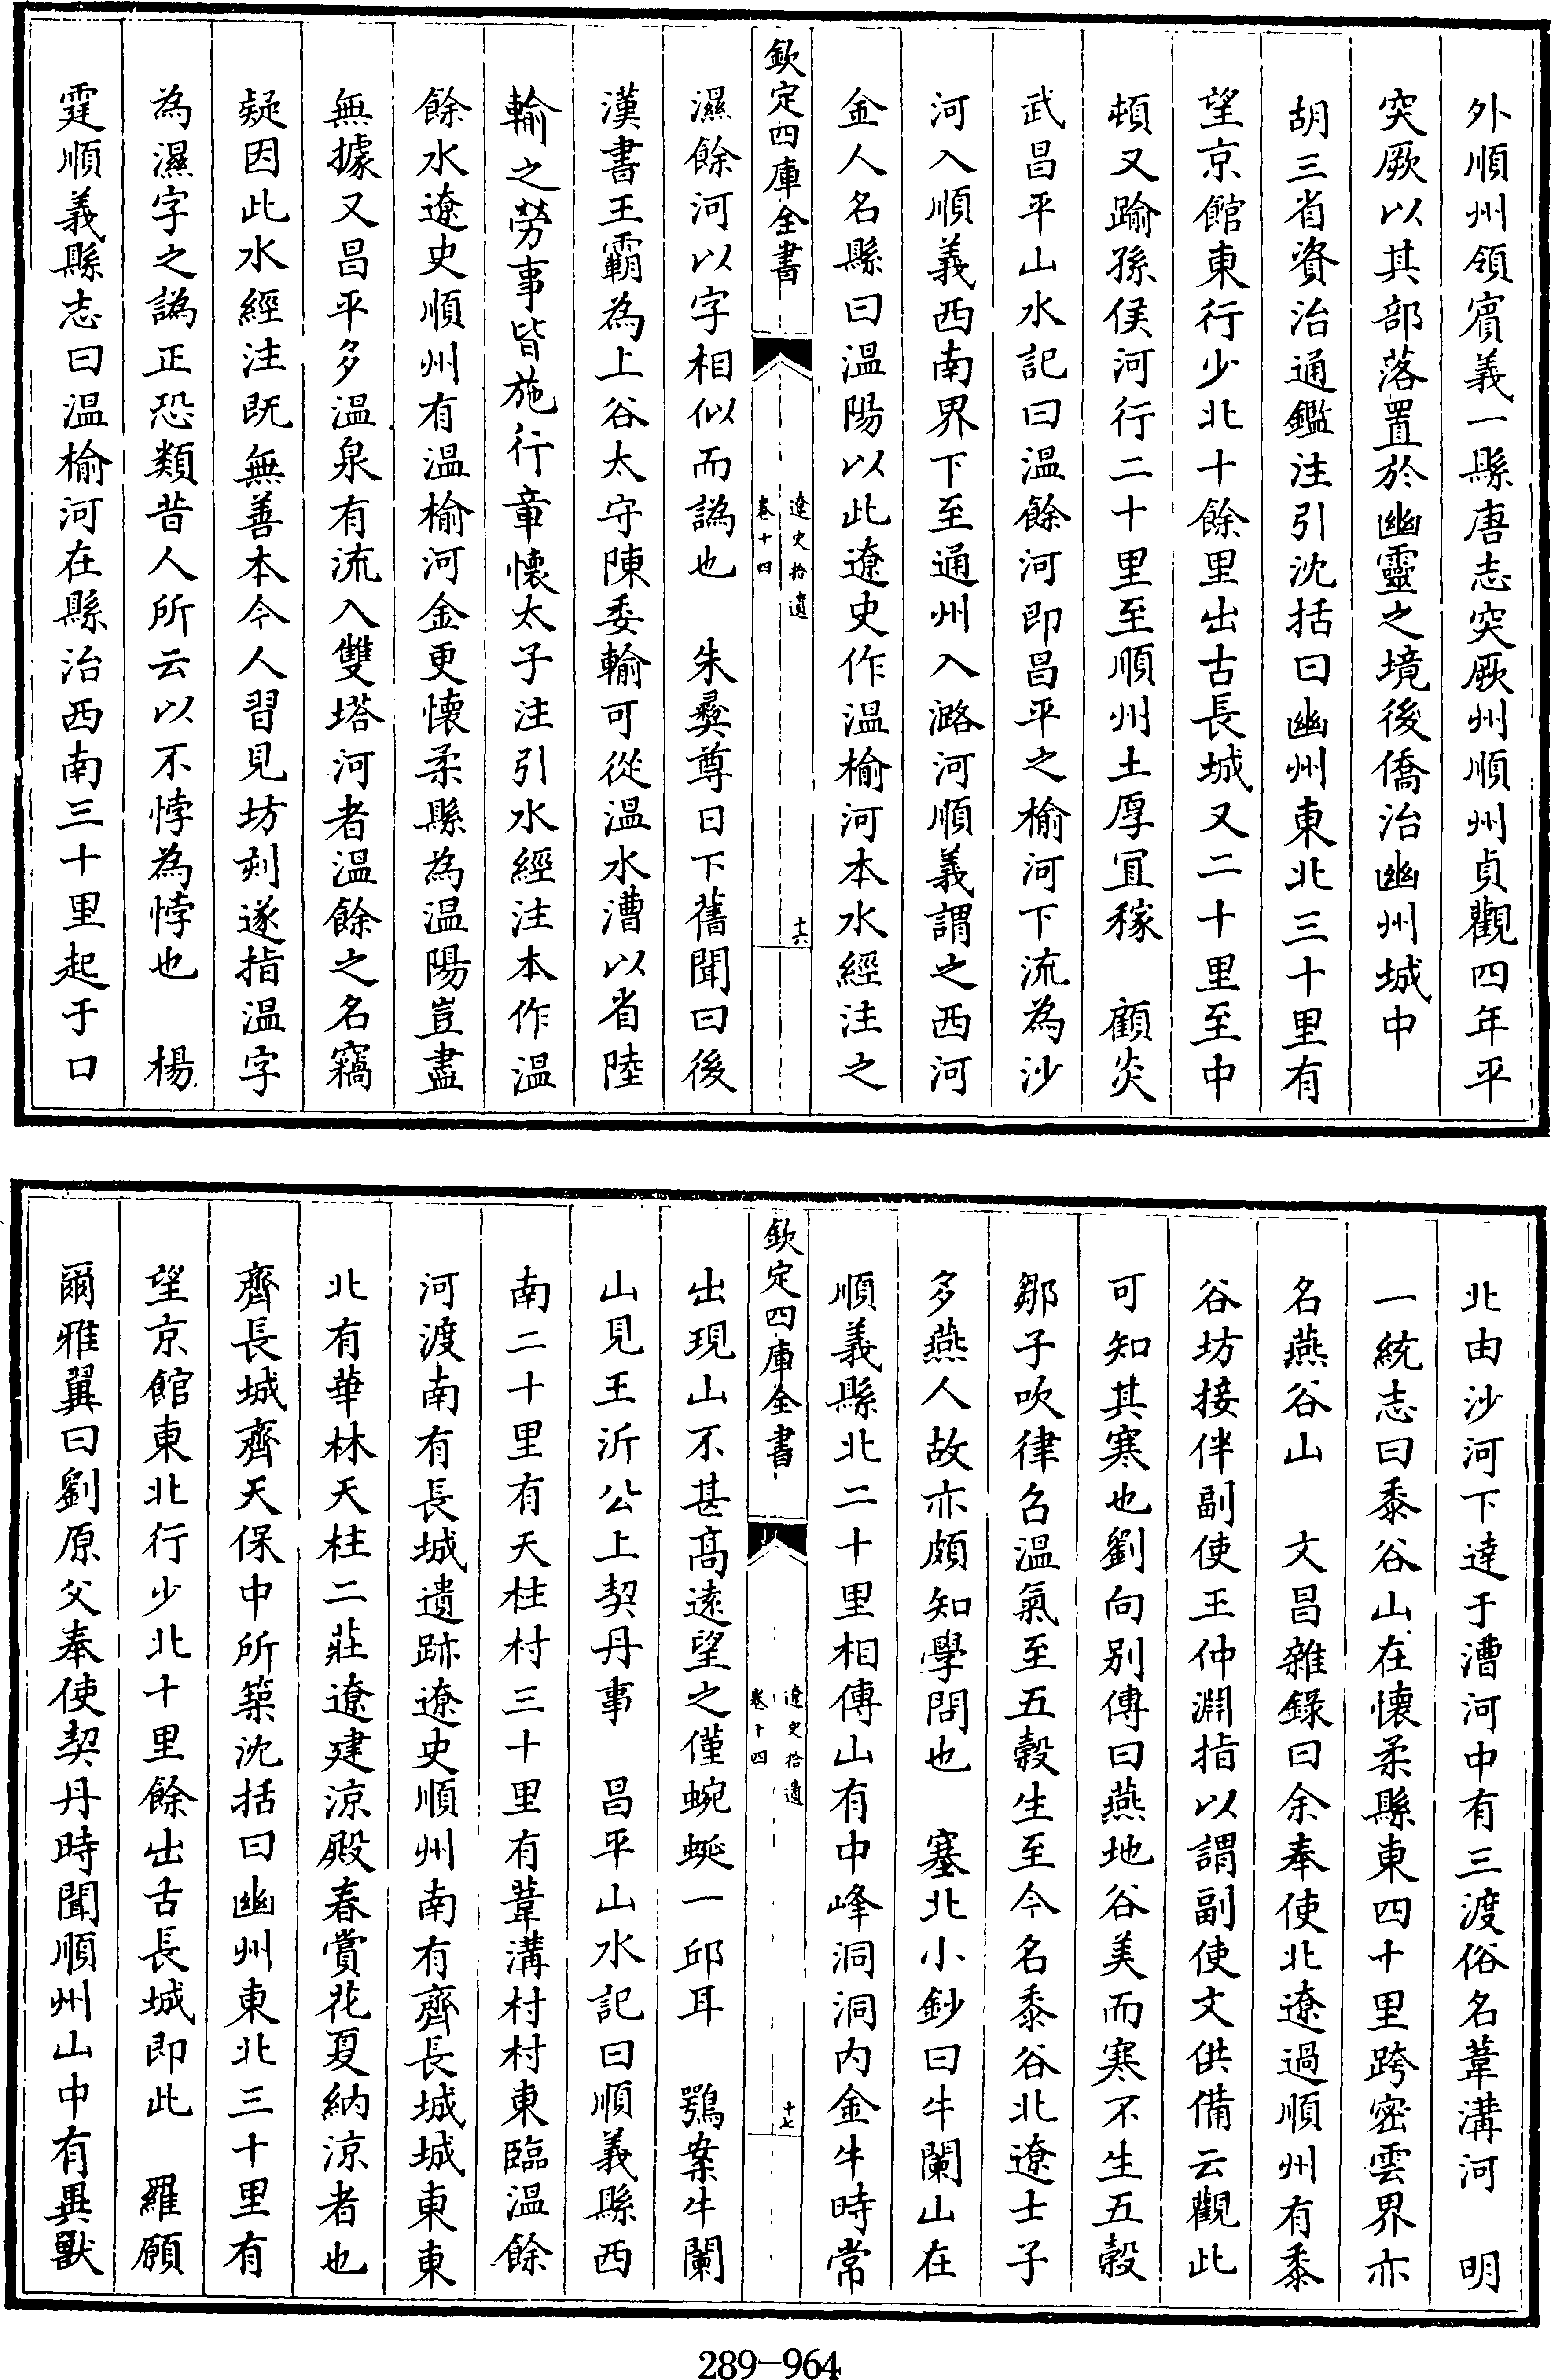 外順州領賔義一縣唐志突厥州順州貞觀四年平
突厥以其部落置於幽靈之境後僑治幽州城中
胡三省資治通鑑注引沈括曰幽州東北三十里有
望京館東行少北十餘里出古長城又二十里至中
頓又踰孫侯河行二十里至順州土厚宜稼　顧炎
武昌平山水記曰温餘河即昌平之榆河下流為沙
河入順義西南界下至通州入潞河順義謂之西河
金人名縣曰温陽以此遼史作温榆河本水經注之
欽定四庫全書
遼史拾遺
卷十四
十六
濕餘河以字相似而譌也　朱彝尊日下舊聞曰後
漢書王霸為上谷太守陳委輸可從温水漕以省陸
輸之勞事皆施行章懷太子注引水經注本作温
餘水遼史順州有温榆河金更懷柔縣為温陽豈盡
無據又昌平多温泉有流入雙塔河者温餘之名竊
疑因此水經注既無善本今人習見坊刻遂指温字
為濕字之譌正恐類昔人所云以不悖為悖也　楊
霆順義縣志曰温榆河在縣治西南三十里起于口
北由沙河下達于漕河中有三渡俗名葦溝河　明
一統志曰黍谷山在懷柔縣東四十里跨密雲界亦
名燕谷山　文昌雜錄曰余奉使北遼過順州有黍
谷坊接伴副使王仲淵指以謂副使文供備云觀此
可知其寒也劉向别傳曰燕地谷美而寒不生五穀
鄒子吹律召温氣至五穀生至今名黍谷北遼士子
多燕人故亦頗知學問也　塞北小鈔曰牛闌山在
順義縣北二十里相傳山有中峰洞洞内金牛時常
欽定四庫全書
遼史拾遺
卷十四
十七
出現山不甚高遠望之僅蜿蜒一邱耳　鶚案牛闌
山見王沂公上契丹事　昌平山水記曰順義縣西
南二十里有天柱村三十里有葦溝村村東臨温餘
河渡南有長城遺跡遼史順州南有齊長城城東東
北有華林天柱二莊遼建涼殿春賞花夏納涼者也
齊長城齊天保中所築沈括曰幽州東北三十里有
望京館東北行少北十里餘出古長城即此　羅願
爾雅翼曰劉原父奉使契丹時聞順州山中有異獸
289-964